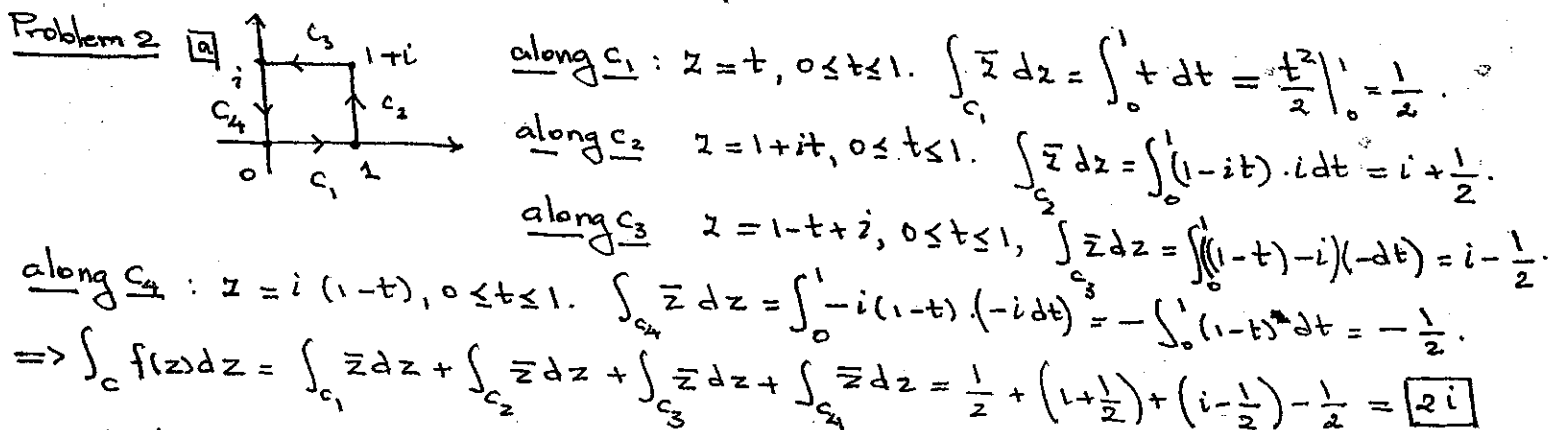 Problem 2 [a] C₃ 1+i i C₂ C₄ 0 C₁ 1
along C₁ : z = t, 0≤t≤1. ∫_{C₁} z̄ dz = ∫₀¹ t dt = t²/2 |₀¹ = 1/2.
along C₂ z = 1+it, 0≤t≤1. ∫_{C₂} z̄ dz = ∫₀¹ (1-it).idt = i + 1/2.
along C₃ z = 1-t+i, 0≤t≤1, ∫_{C₃} z̄ dz = ∫₀¹ ((1-t)-i)(-dt) = i - 1/2.
along C₄ : z = i(1-t), 0≤t≤1. ∫_{C₄} z̄ dz = ∫₀¹ -i(1-t).(-idt) = -∫₀¹ (1-t) dt = -1/2.
=> ∫_C f(z)dz = ∫_{C₁} z̄dz + ∫_{C₂} z̄dz + ∫_{C₃} z̄dz + ∫_{C₄} z̄dz = 1/2 + (i+1/2) + (i-1/2) - 1/2 = [2i]